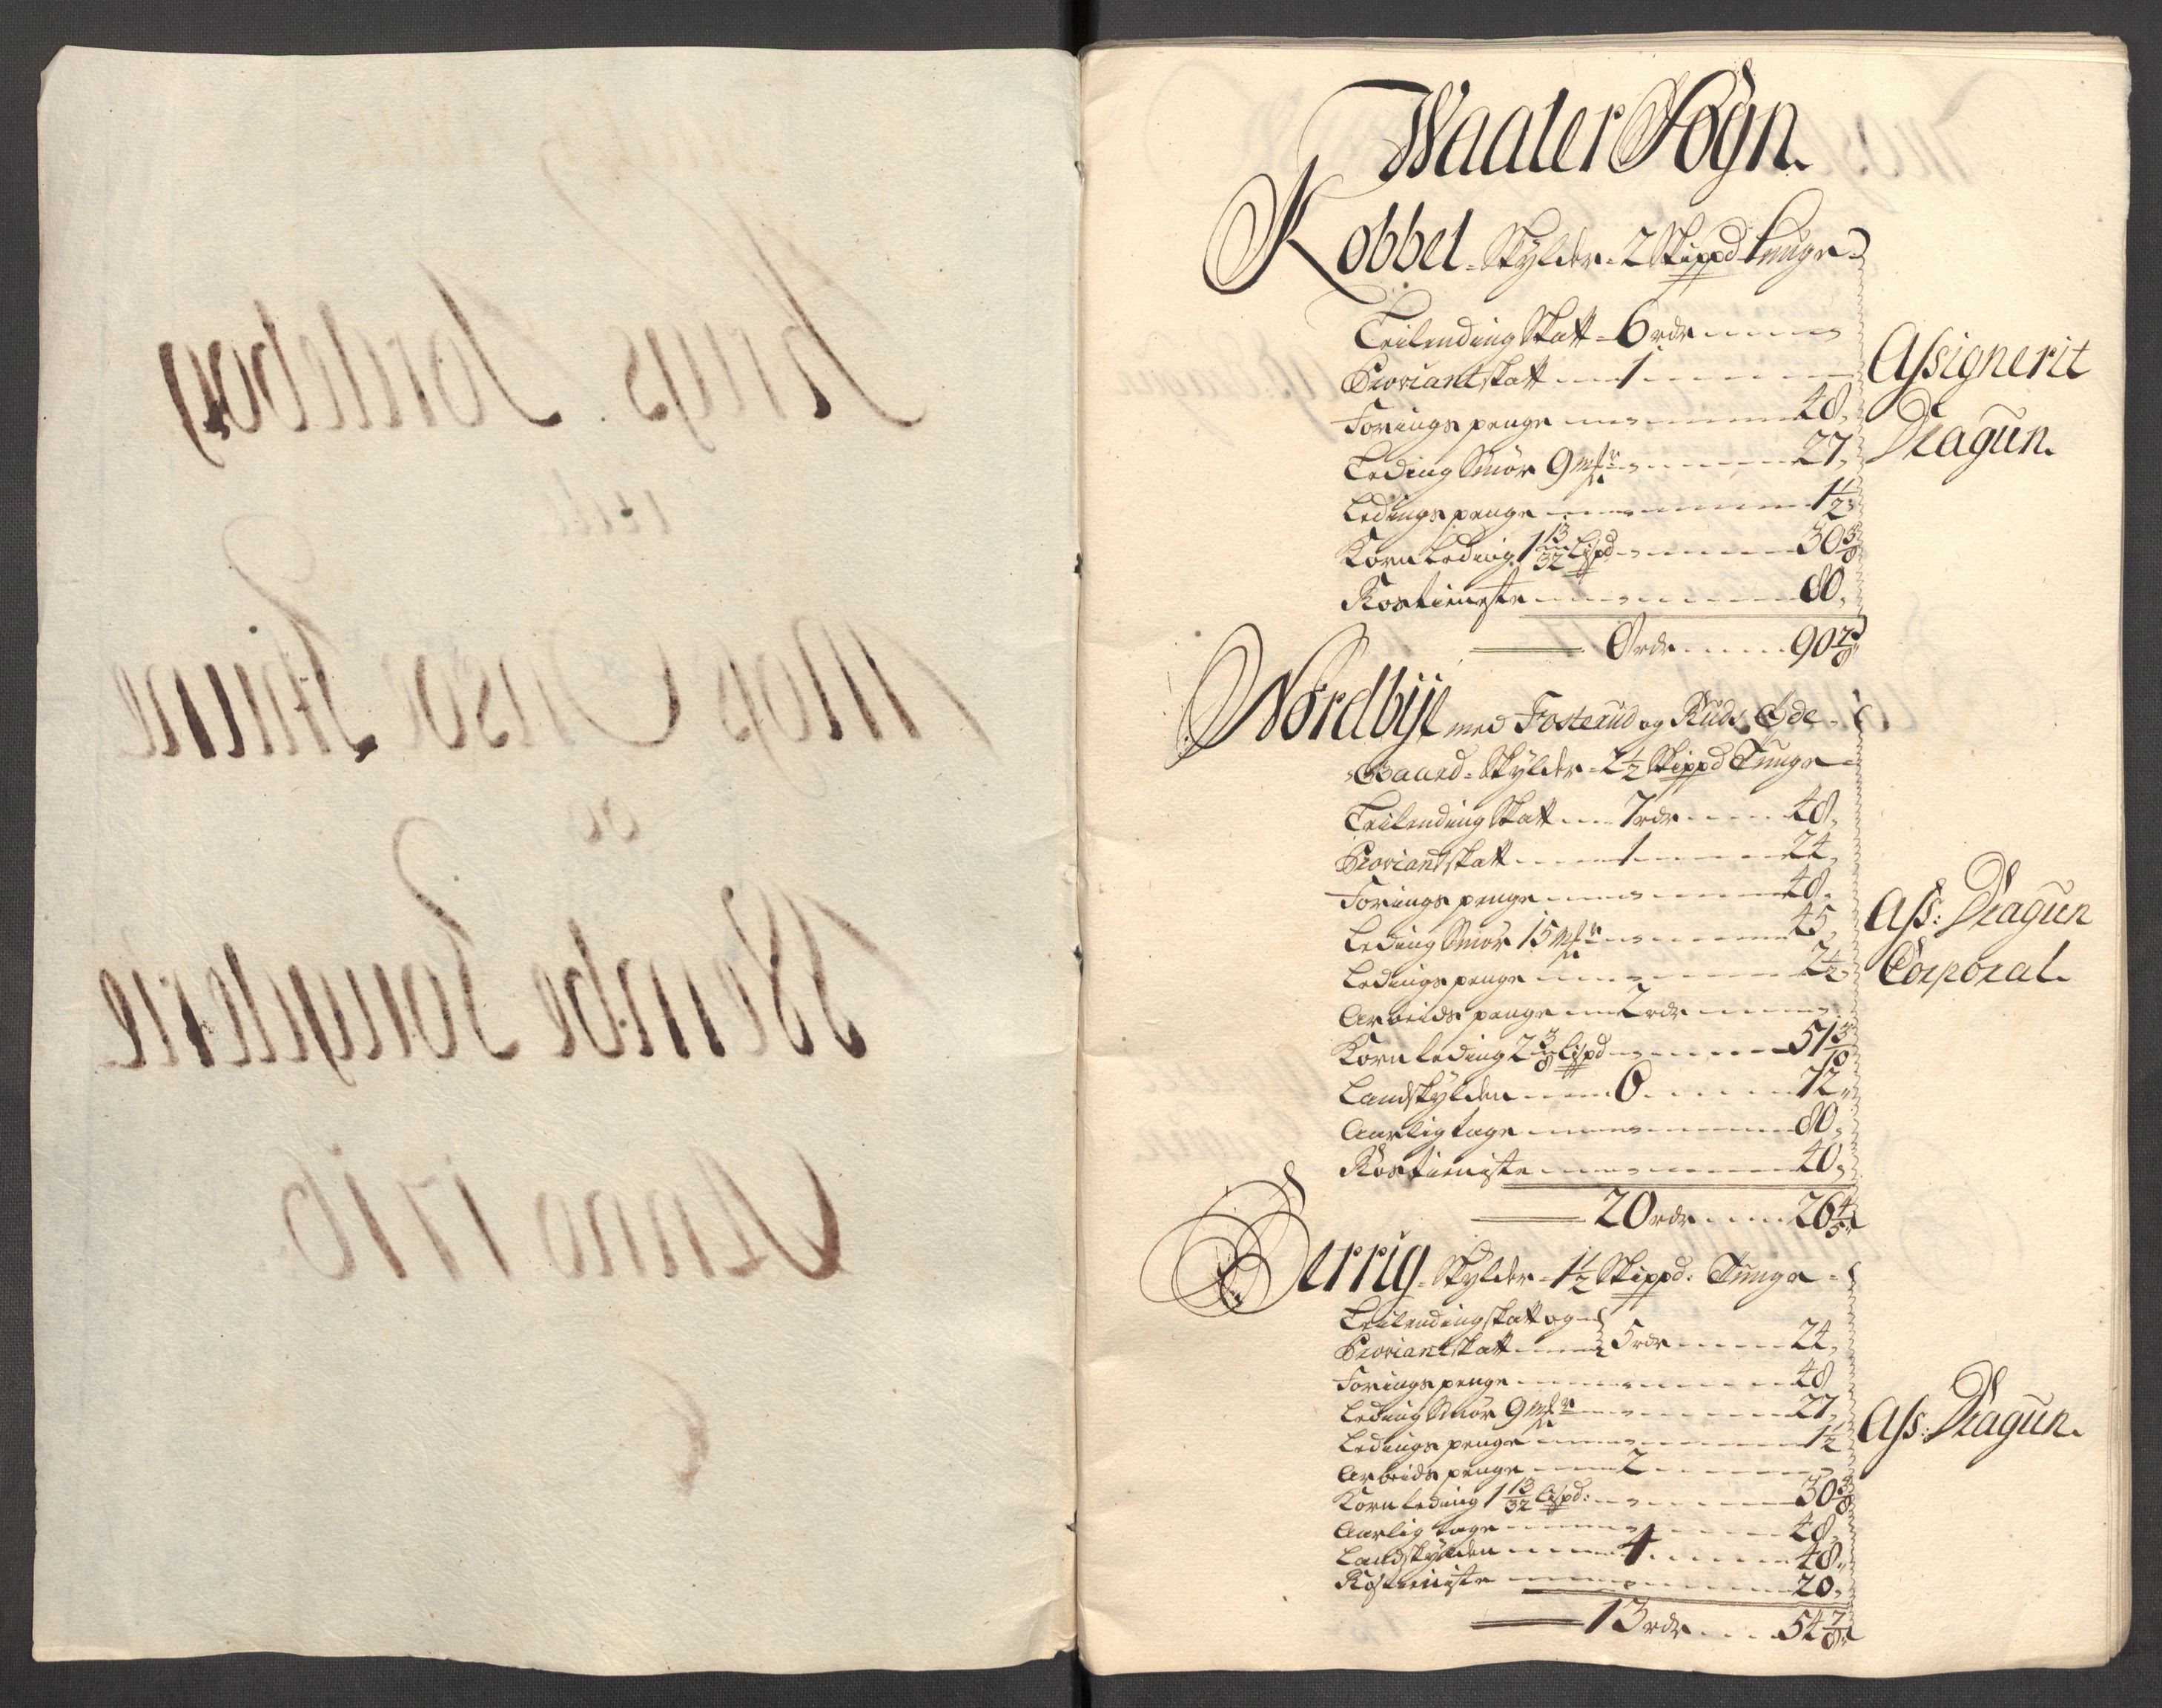 Waaler Sogn.
Kobbel Skylder 2 Skippd Tunge
Leilending Skatt 6 rdr
Proviantskatt 1
Foringspenge 48
Leding Smør 9 mkr 27
Ledingspenge 1½
Kornleding 1 13/32 Lispd 30 3/8
Rostieniste 80
8 rdr 90 7/8
Assignerit
Dragun.
Nordbÿe med Fosterud og Ruds Øde
Gaard Skylder 2½ Skippd Tunge
Leilending Skatt 7 rdr 48
Proviantskatt 1 24
Foringspenge 48
Leding Smør 15 mkr 45
Ledingspenge 2½
Arbeidspenge 2 rdr
Kornleding 2 3/8 Lispd 51 3/10
Landskylden 8 72
Aarligtage 80
Rostieniste 40
20 rdr 26 4/5
Ass: Dragun
Corporal.
Berrig Skylder 1½ Skippd: Tunge
Leilendingskatt og
Proviantskatt 5 rdr 24
Foringspenge 48
Leding Smør 9 mkr 27
Ledingspenge 1½
Arbeidspenge 2
Kornleding 1 13/32 Lispd: 30 3/8
Aarlig tage 48
Landskylden 4 48
Rostieniste 20
13 rdr 54 7/8
Ass: Dragun.